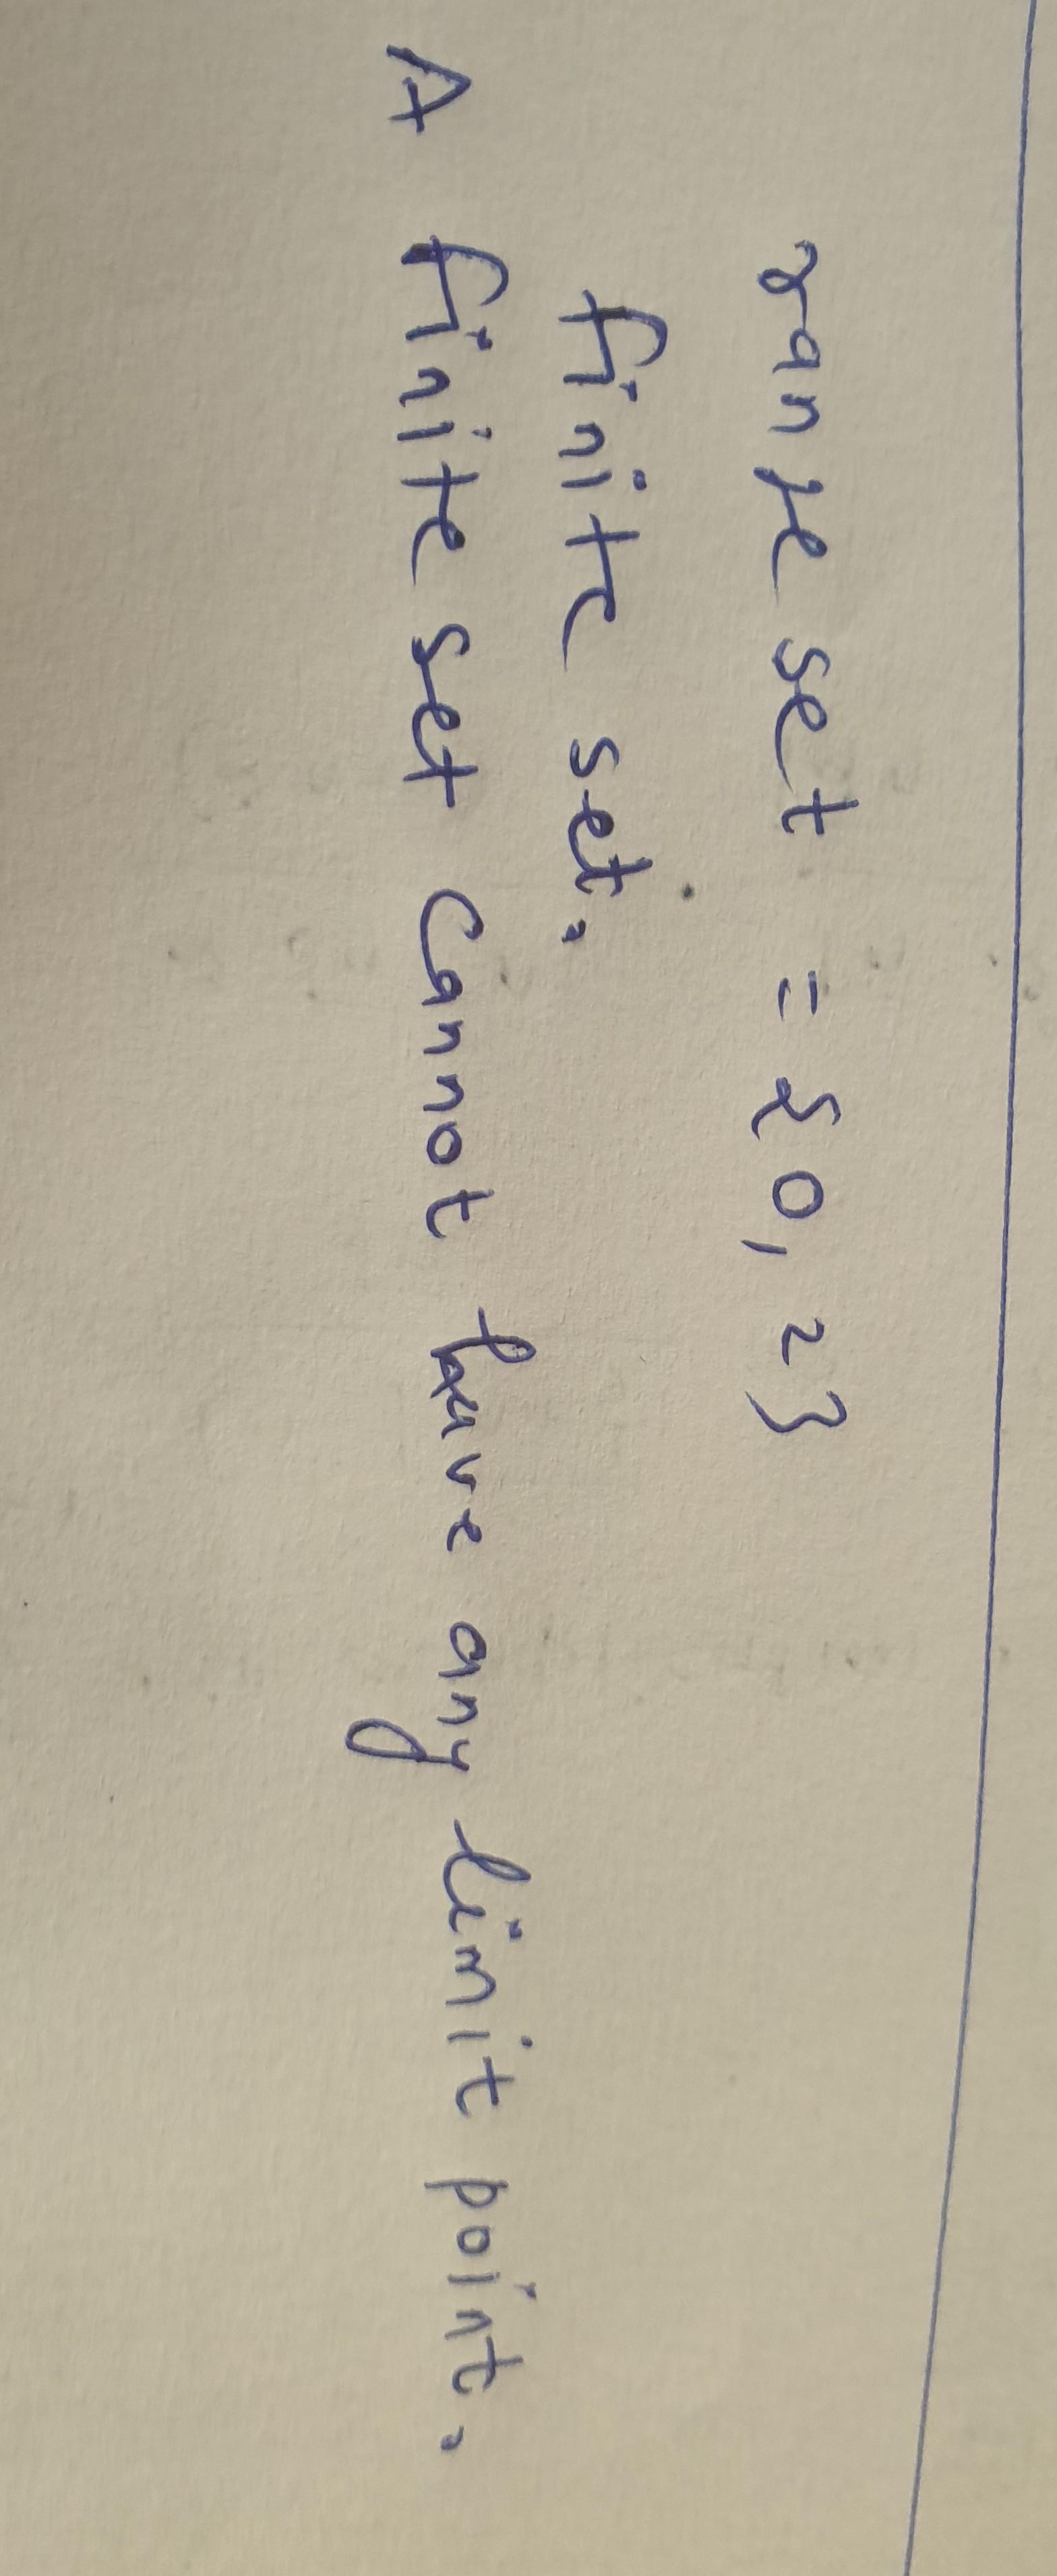 range set = {0, 2}
finite set.
A finite set cannot have any limit point.